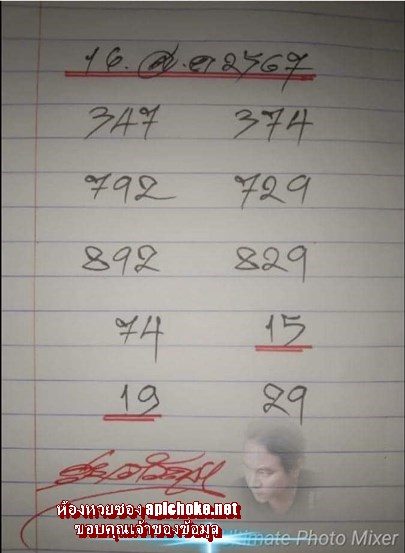 16.ส.ค 2567
347 374
792 729
892 829
74 15
19 29
ห้องหวยซอง apichoke.net
ขอบคุณเจ้าของข้อมูล
Ultimate Photo Mixer